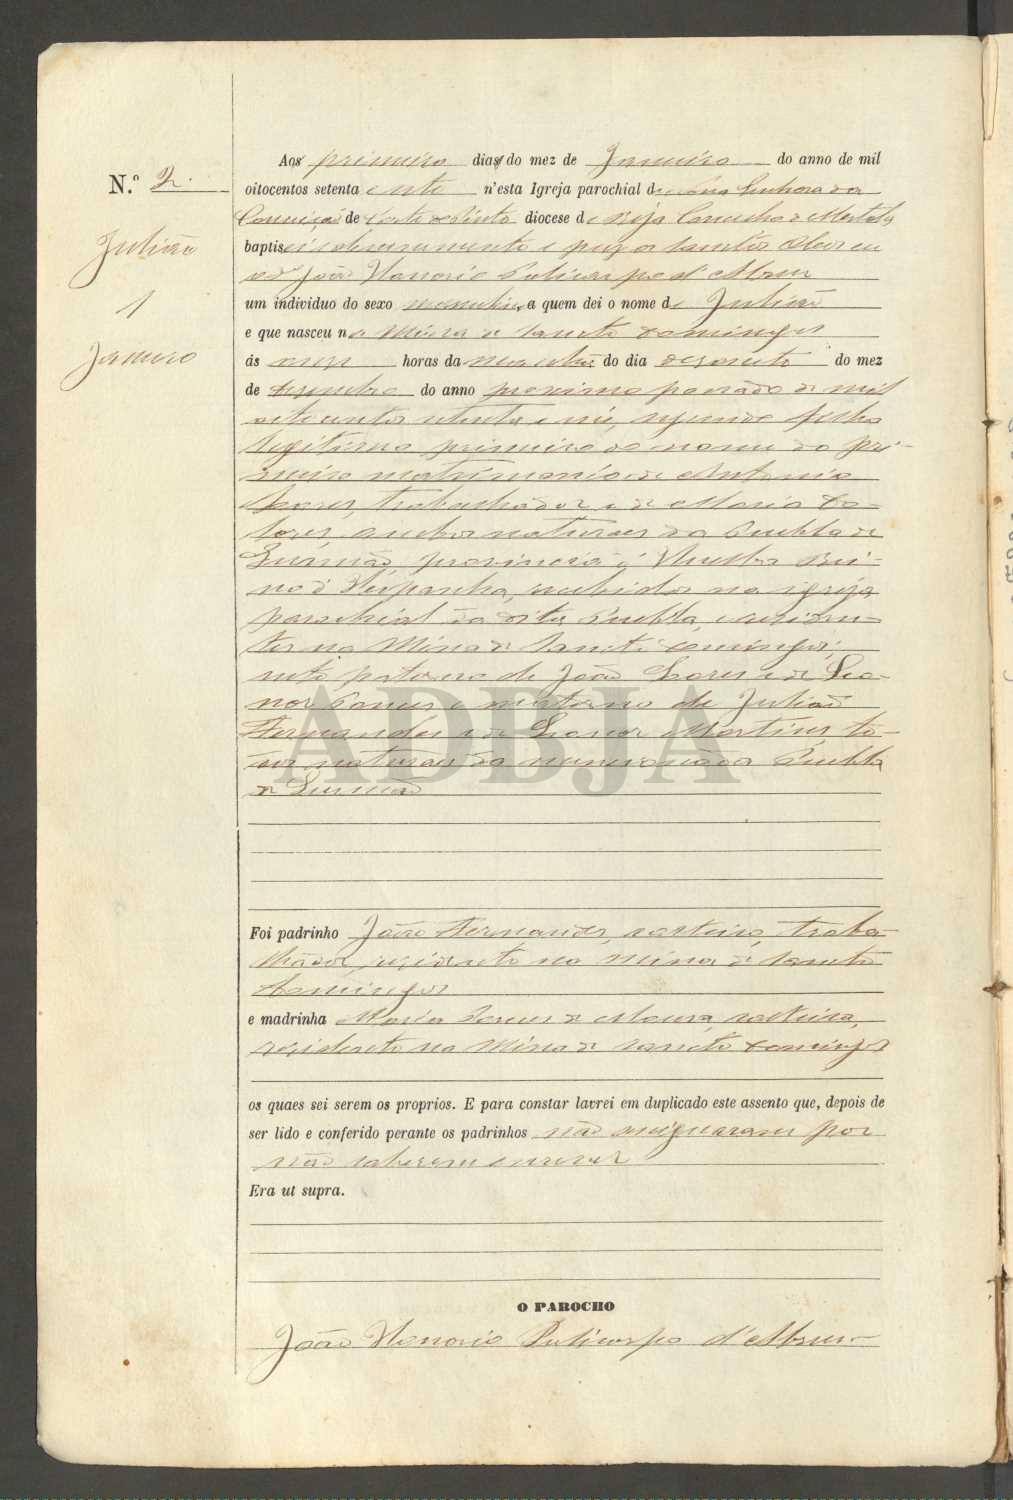 N.º 2.
Julião
1
Janeiro
Aos primeiro dias do mez de Janeiro do anno de mil
oitocentos setenta e sete n'esta Igreja parochial de Nossa Senhora da
Conceição de Corte do Pinto diocese de Beja Concelho de Mertola
baptisei solemnemente e puz os Sanctos Oleos eu
João Honorio Policarpo d'Abreu
um individuo do sexo masculino, a quem dei o nome de Julião
e que nasceu na Mina de Sancto Domingos
ás onze horas da do dia dezoito do mez
de Dezembro do anno proximo passado de mil
oitocentos setenta e seis, segundo filho
legitimo, primeiro do nome do pri-
meiro matrimonio de Antonio
Soares, trabalhador e de Maria Do-
lores, ambos naturaes da Puebla de
Gusmão, provincia d'Huelba Rei-
no d'Hespanha, recebidos na igreja
parochial da dita Puebla, e residen-
tes na Mina de Sancto Domingos;
neto paterno de João Soares e de Leo-
nor Ponces e materno de Julião
Fernandes e de Leonor Martins, to-
dos naturaes da mencionada Puebla
de Gusmão
ADBJA
Foi padrinho João Fernandes, solteiro, traba-
lhador, residente na Mina de Sancto
Domingos
e madrinha Maria de Moura, solteira,
residente na Mina de Sancto Domingos
os quaes sei serem os proprios. E para constar lavrei em duplicado este assento que, depois de
ser lido e conferido perante os padrinhos não assignaram por
não saberem escrever
Era ut supra.
O PAROCHO
João Honorio Policarpo d'Abreu